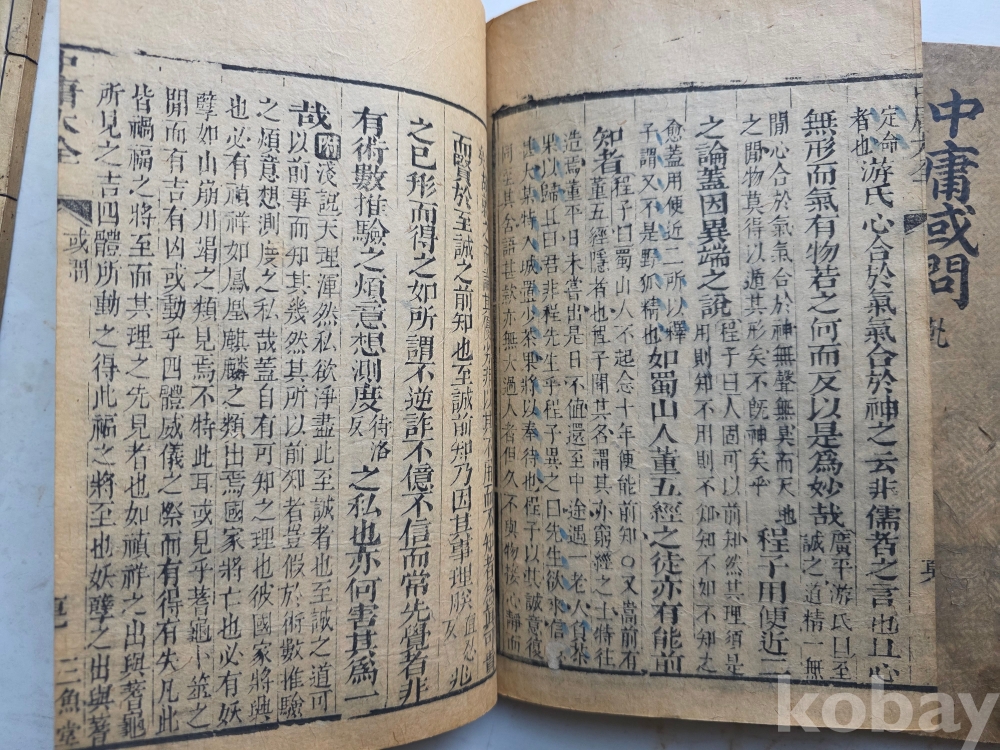 中庸或問
定命
者也
游氏心合於氣氣合於神之云非儒者之言也且心
無形而氣有物若之何而反以是為妙哉
廣平游氏曰至
誠之道精一無
間心合於氣氣合於神無聲無臭而天地
之間物莫得以遁其形矣不旣神矣乎
程子用便近二
之論蓋因異端之說
程子曰人固可以前知然其理須是
用則知不用則不知知不如不知之
愈蓋用便近二所以釋
子謂又不是野狐精也
如蜀山人董五經之徒亦有能前
知者
程子曰蜀山人不起念十年便能前知○又嵩前有
董五經隱者也程子聞其名謂其亦窮經之士特往
造焉董平日未嘗出是日不值還至中途遇一老人負茶
果以歸且曰君非程先生乎程子異之曰先生欲來信
大某特入城置少茶果將以奉待也程子以其誠意復
同至其舍語甚款亦無大過人者但久不與物接心靜而
而賢於至誠之前知也至誠前知乃因其事理朕直忍反兆
之已形而得之如所謂不逆詐不億不信而常先覺者非
有術數推驗之煩意想測度待洛反之私也亦何害其為一
哉
附淺說天理渾然私欲淨盡此至誠者也至誠之道可
以前事而知其幾然其所以前知者豈假於術數推驗
之煩意想測度之私哉蓋自有可知之理也彼國家將興
也必有禎祥如鳳凰麒麟之類出焉國家將亡也必有妖
孽如山崩川竭之類見焉不特此耳或見乎蓍龜卜筮之
間而有吉有凶或動乎四體威儀之際而有得有失凡此
皆禍福之將至而其理之先見者也如禎祥之出與蓍龜
所見之吉四體所動之得此福之將至也妖孽之出與蓍
中庸大全
或問
三魚堂
kobay